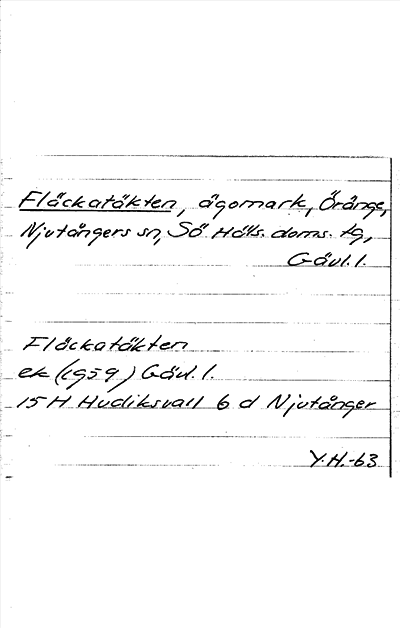 Fläckatäkten, ägomark, Öränge,
Njutångers sn, Sö. Häls. doms. tg,
Gävl. l.
Fläckatäkten
ek (1959) Gävl. l.
15 H Hudiksvall 6 d Njutånger
Y.H.-63